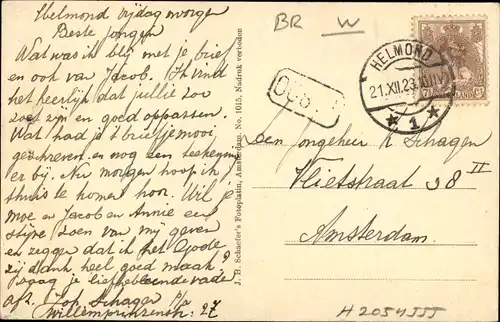 Helmond vrijdag morgen
Beste jongen
Wat was ik blij met je brief
en ook van Jacob. Ik vind
het heerlijk dat jullie zoo
zoet zijn en goed oppassen.
Wat had je 't briefje mooi
geschreven en nog een teekening
er bij. Nu morgen hoop ik
thuis te komen hoor. Wil je
moe en Jacob en Annie een
zoen van mij geven
en zeggen dat ik het Gode
zij dank heel goed maak
dag je liefhebbende vader
Joh. Schagen p/a
Willemprinzenstr. 27
J. H. Schaefer's Fotoplatin, Amsterdam. No. 1015. Nadruk verboden
BR W
HELMOND
21.XII.23
1
NEDERLAND
Den Jongeheer K Schagen
Vlietstraat 38 II
Amsterdam.
H2054555